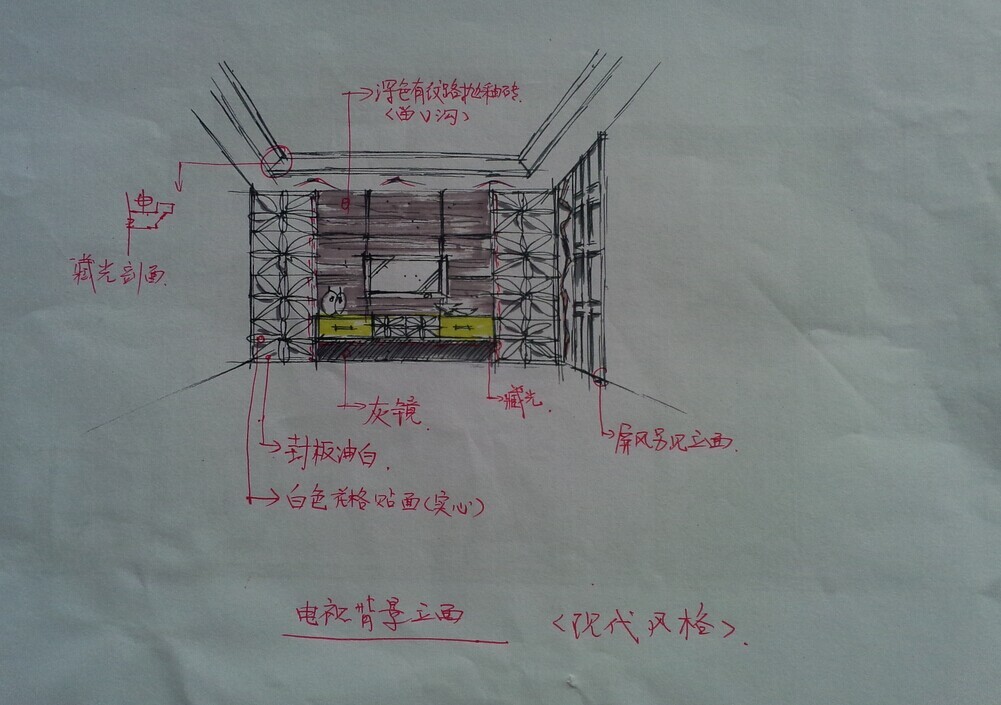 深色有纹路抛釉砖
(凿V沟)
藏光剖面
灰镜
藏光
封板油白
屏风另见立面
白色花格贴面(实心)
电视背景立面
<现代风格>